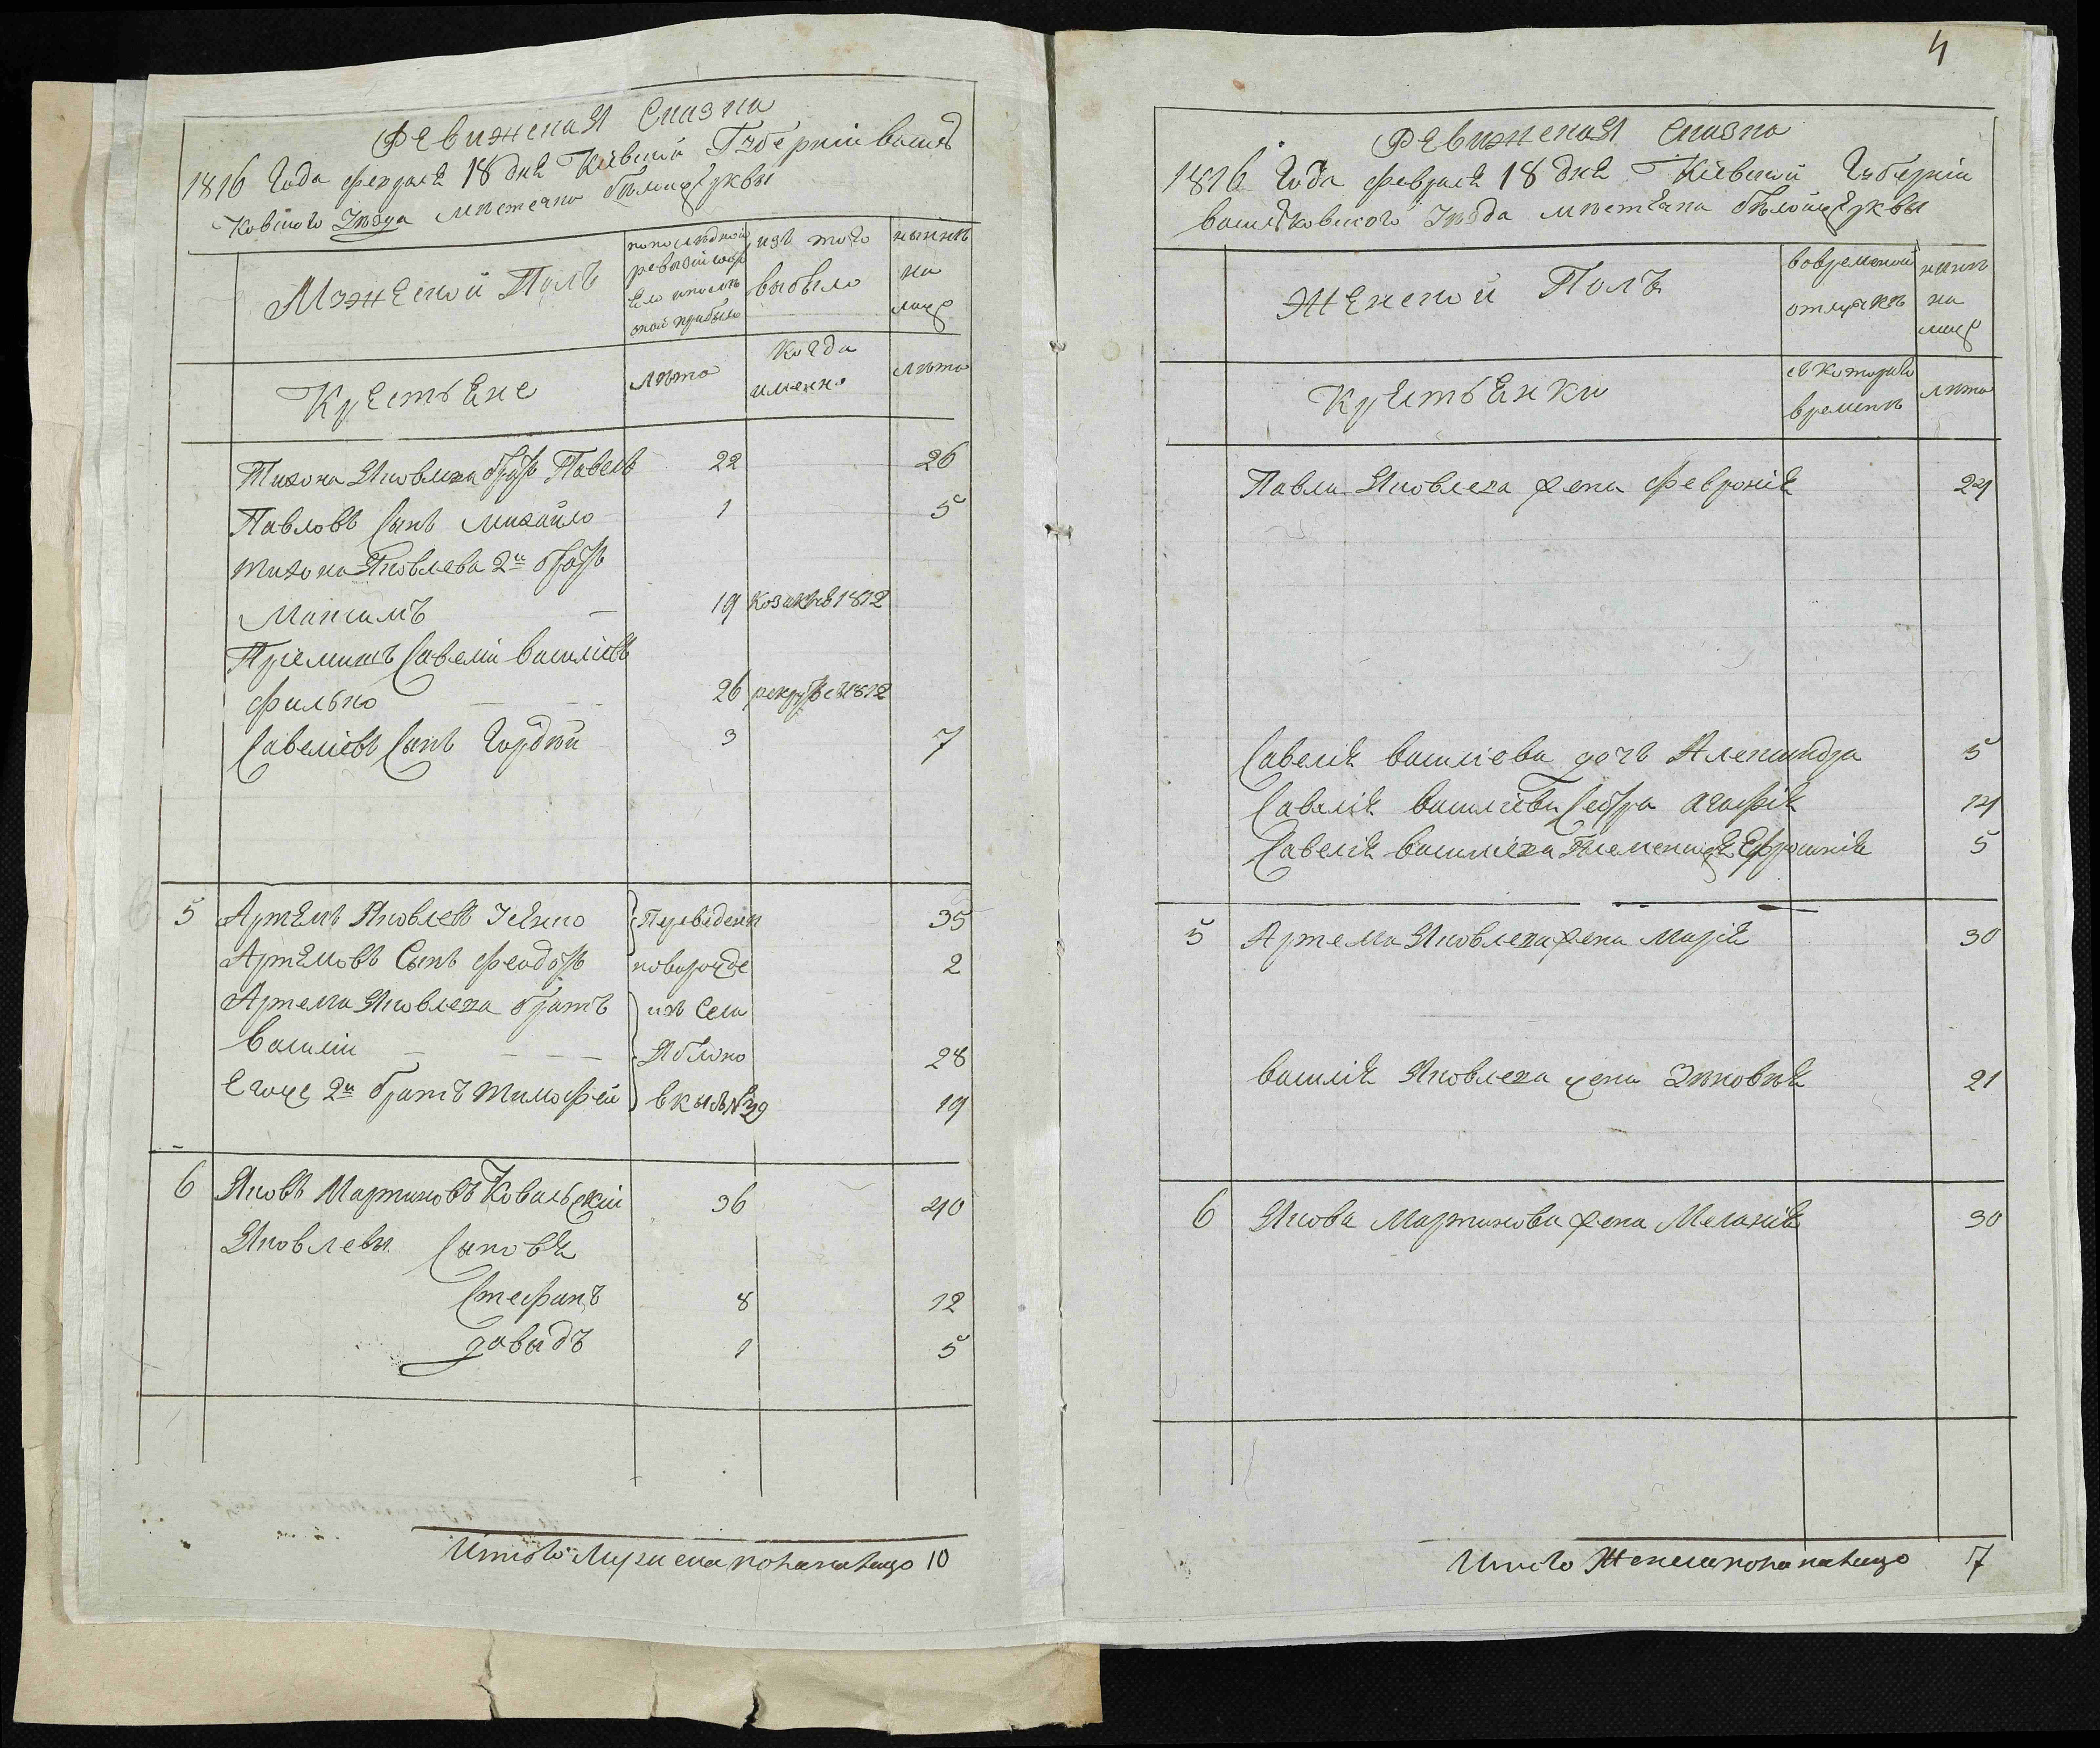 Ревижская Сказка
1816 Года февраля 18 дня Кіевской Губерніи василь
ковского Уезда местечка белой церквы
Мужеской Полъ
по последной ревизіи состояло и после оной прибыло
изъ того выбыло
ныне на лицо
Крестьяне
лета
когда именно
лета
Тихона Яковлева братъ Павелъ 22 26
Павловъ сынъ михайло 1 5
тихона Яковлева 2й братъ
Максимъ 19 козакъ въ 1812
Пріемышъ Савелій василіевъ
филько 26 рекрутъ въ 1812
Савеліевъ Сынъ Гордей 3 7
5 Артемъ Яковлевъ 35
Артемовъ Сынъ феодоръ 2
Артема Яковлева братъ
василій 28
Егожъ 2й братъ тимофей 19
Переведены
изъ села
Яблоно
вки
6 Яковъ Мартиновъ Ковальскій 36 40
Яковлевы Сыновя
Стефанъ 8 12
давыдъ 1 5
Итого мужеска пола на лицо 10
4
Ревижская сказка
1816 Года февраля 18 дня Кіевской Губерніи
василковского Уезда местечка белойцерквы
Женской Полъ
во временной отлучке
ныне на лицо
Крестьянки
съ которого времени
лета
Павла Яковлева жена Февронія 24
Савелія василіева дочь Александра 5
Савелія василіева сестра агафія 14
Савелія василіева племеница Ефросинія 5
5 Артема Яковлева жена Марія 30
василія Яковлева жена Зиновія 21
6 Якова Мартинова жена Меланія 30
Итого Женска пола на лицо 7